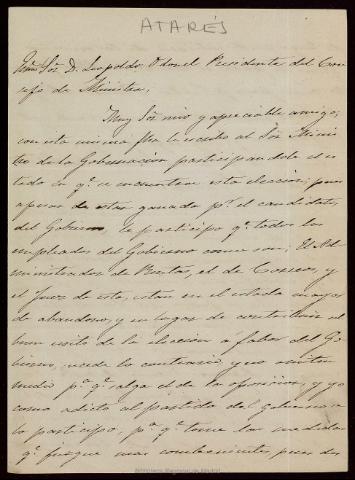 ATARÉS
Exmo Sor. D. Leopoldo Odonel Presidente del Con
sejo de Ministros,
Muy Sor mio y apreciable amigo;
con esta misma fha le escribo al Sor Minis
tro de la Gobernacion participandole el es
tado en qe. se encuentra esta eleccion; pues
apesar de estar ganada pr. el candidato
del Gobierno, le participo qe. todos los
empleados del Gobierno como son; El Ad
ministrador de Rentas, el de Correos, y
el Juez de esta, estan en el estado mayor
de abandono, y en lugar de contribuir al
buen exito de la eleccion á fabor del Go
bierno, sucede lo contrario y no omiten
medio pa. qe. salga el de la oposicion, y yo
como adicto al partido del Gobierno se
lo participo, pa. qe. tome las medidas
qe. juzgue mas combenientes pues dos